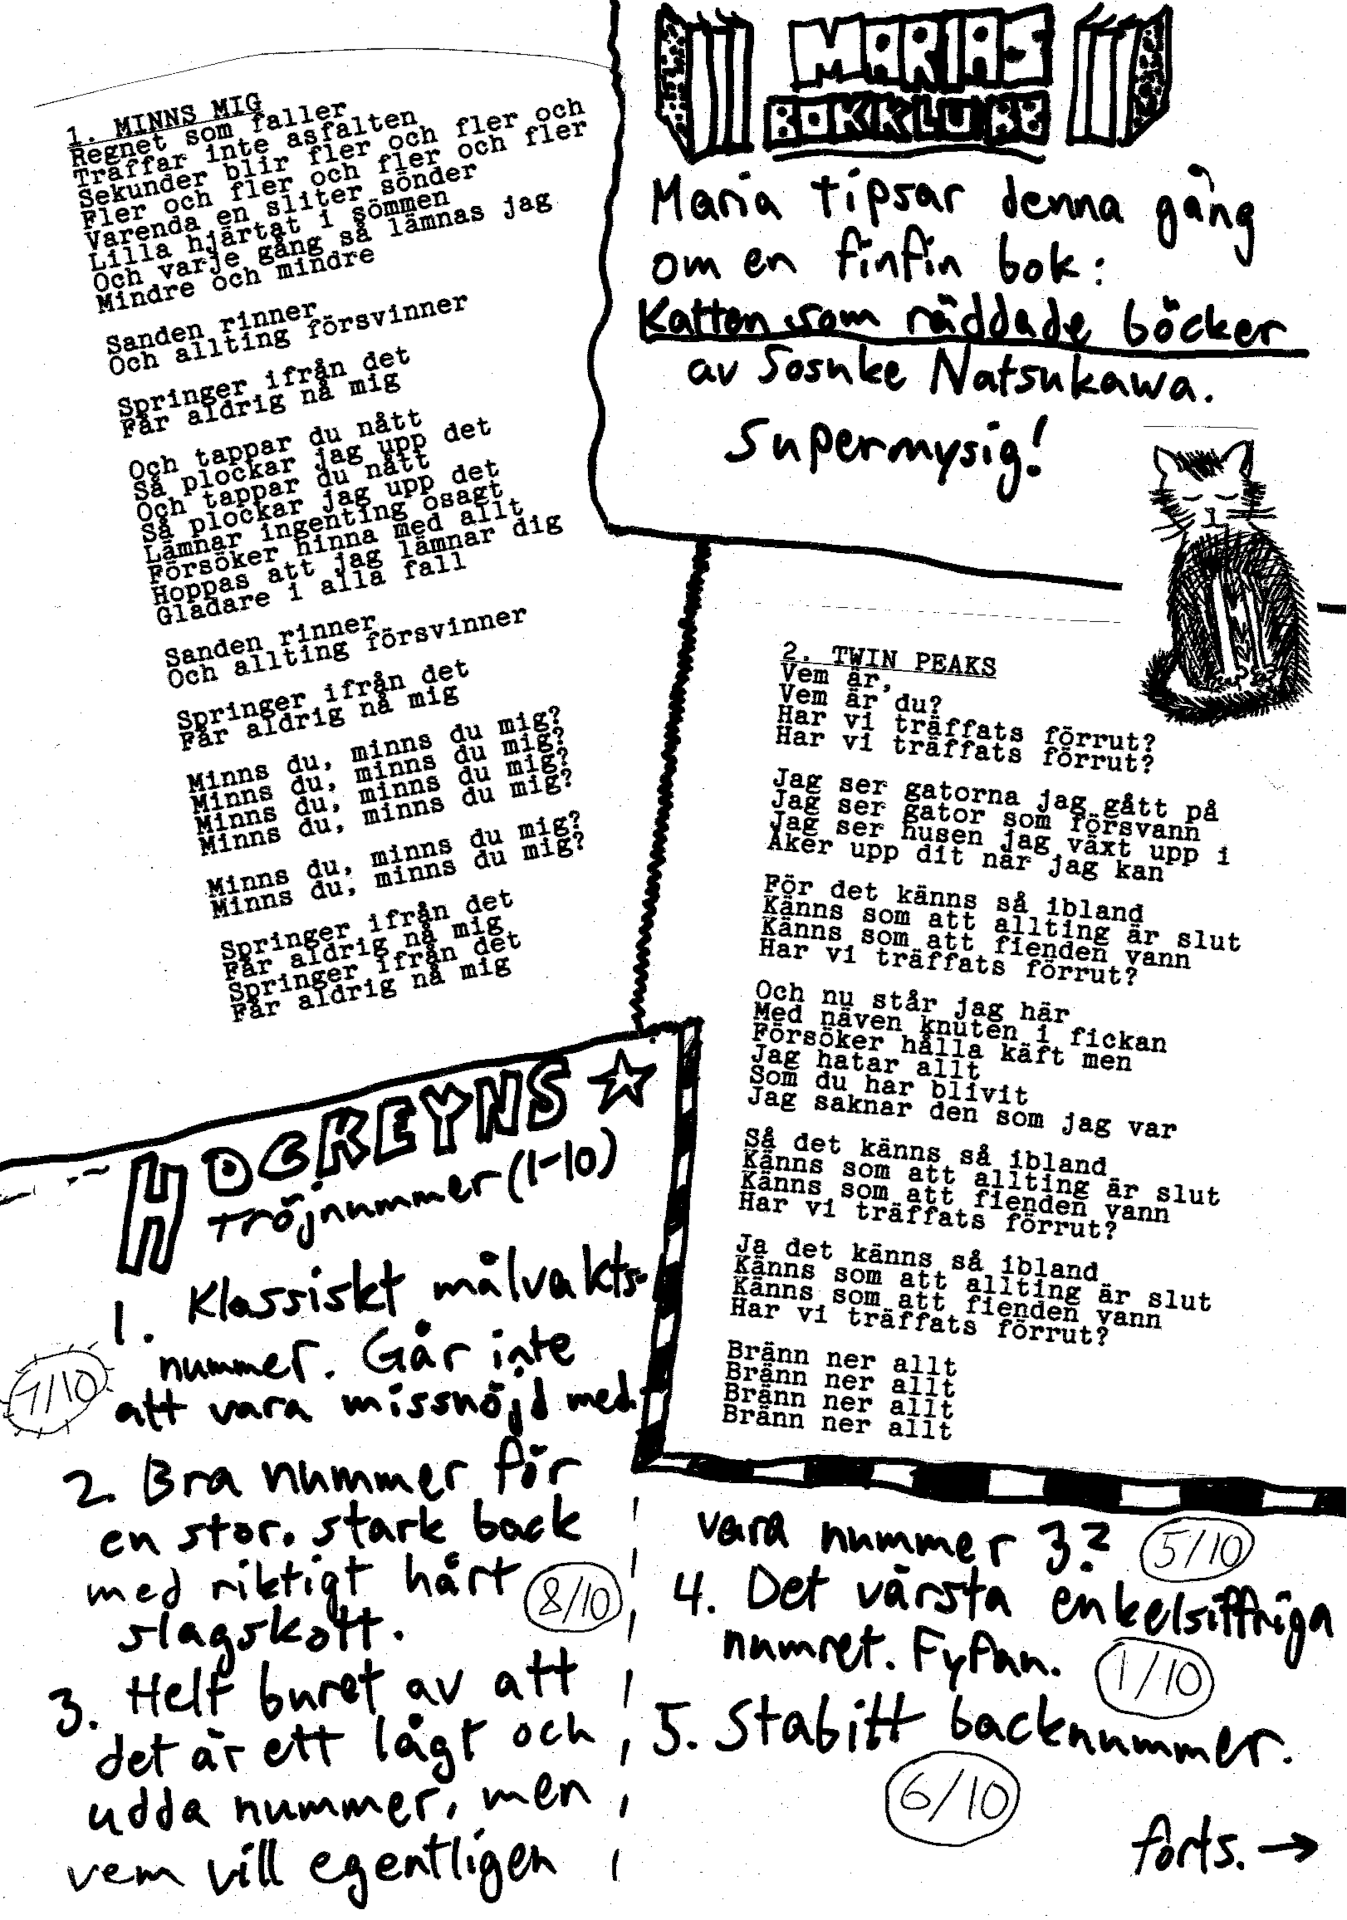 1. MINNS MIG
Regnet som faller
Träffar inte asfalten
Sekunder blir fler och fler och
Fler och fler och fler och fler
Varenda en sliter sönder
Lilla hjärtat i sömmen
Och varje gång så lämnas jag
Mindre och mindre
Sanden rinner
Och allting försvinner
Springer ifrån det
Får aldrig nå mig
Och tappar du nått
Så plockar jag upp det
Och tappar du nått
Så plockar jag upp det
Lämnar ingenting osagt
Försöker hinna med allt
Hoppas att jag lämnar dig
Gladare i alla fall
Sanden rinner
Och allting försvinner
Springer ifrån det
Får aldrig nå mig
Minns du, minns du mig?
Minns du, minns du mig?
Minns du, minns du mig?
Minns du, minns du mig?
Minns du, minns du mig?
Minns du, minns du mig?
Springer ifrån det
Får aldrig nå mig
Springer ifrån det
Får aldrig nå mig
MARIAS
BOKKLUBB
Maria tipsar denna gång
om en finfin bok:
Katten som räddade böcker
av Sosuke Natsukawa.
Supermysig!
2. TWIN PEAKS
Vem är,
Vem är du?
Har vi träffats förrut?
Har vi träffats förrut?
Jag ser gatorna jag gått på
Jag ser gator som försvann
Jag ser husen jag växt upp i
Åker upp dit när jag kan
För det känns så ibland
Känns som att allting är slut
Känns som att fienden vann
Har vi träffats förrut?
Och nu står jag här
Med näven knuten i fickan
Försöker hålla käft men
Jag hatar allt
Som du har blivit
Jag saknar den som jag var
Så det känns så ibland
Känns som att allting är slut
Känns som att fienden vann
Har vi träffats förrut?
Ja det känns så ibland
Känns som att allting är slut
Känns som att fienden vann
Har vi träffats förrut?
Bränn ner allt
Bränn ner allt
Bränn ner allt
Bränn ner allt
HOCKEYNS
Tröjnummer (1-10)
1. Klassiskt målvakts-
nummer. Går inte
att vara missnöjd med.
7/10
2. Bra nummer för
en stor, stark back
med riktigt hårt
slagskott.
8/10
3. Helt buret av att
det är ett lågt och
udda nummer, men
vem vill egentligen
vara nummer 3?
5/10
4. Det värsta enkelsiffriga
numret. Fyfan.
1/10
5. Stabitt backnummer.
6/10
forts. →